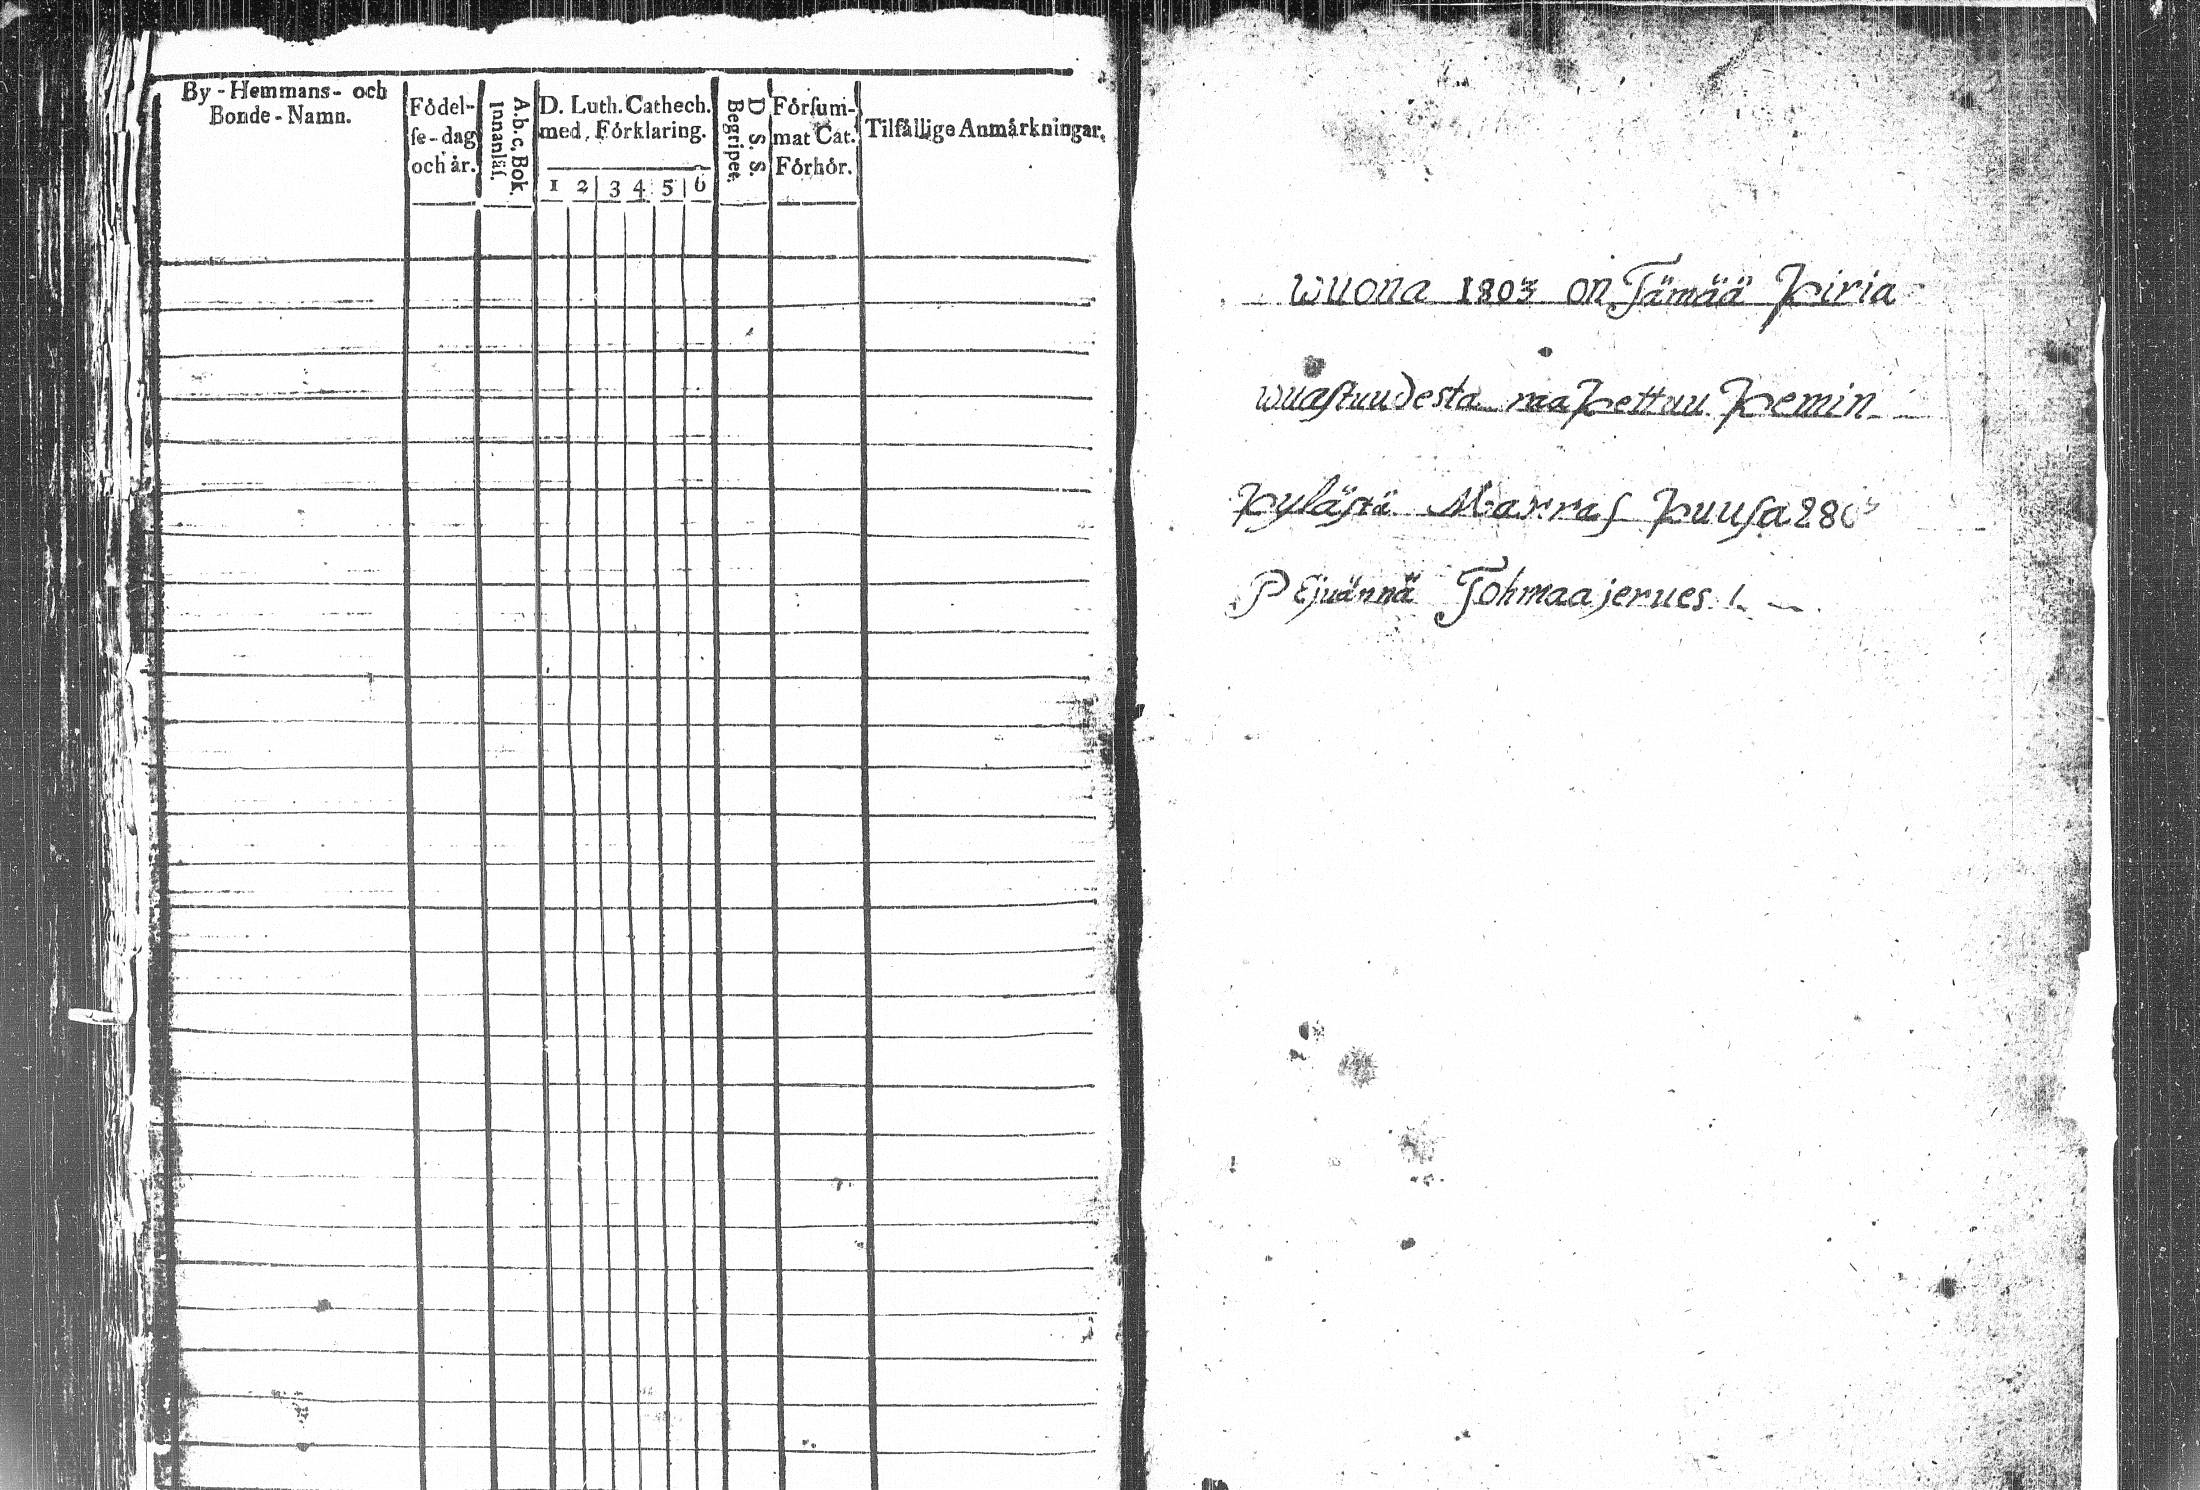 By-Hemmans- och
Bonde-Namn.
Födel-
se-dag
och år.
A.b.c. Bok.
Innanläs.
D. Luth. Cathech.
med Förklaring.
1 2 3 4 5 6
D. S. S.
Begriper.
Försum-
mat Cat.
Förhör.
Tilfällige Anmärkningar.
wuona 1803 on Tämää kiria
wuastuudesta raakettuu kemin
kylästä Marras kuusa 280
P Ejuännä Tohmaajerues